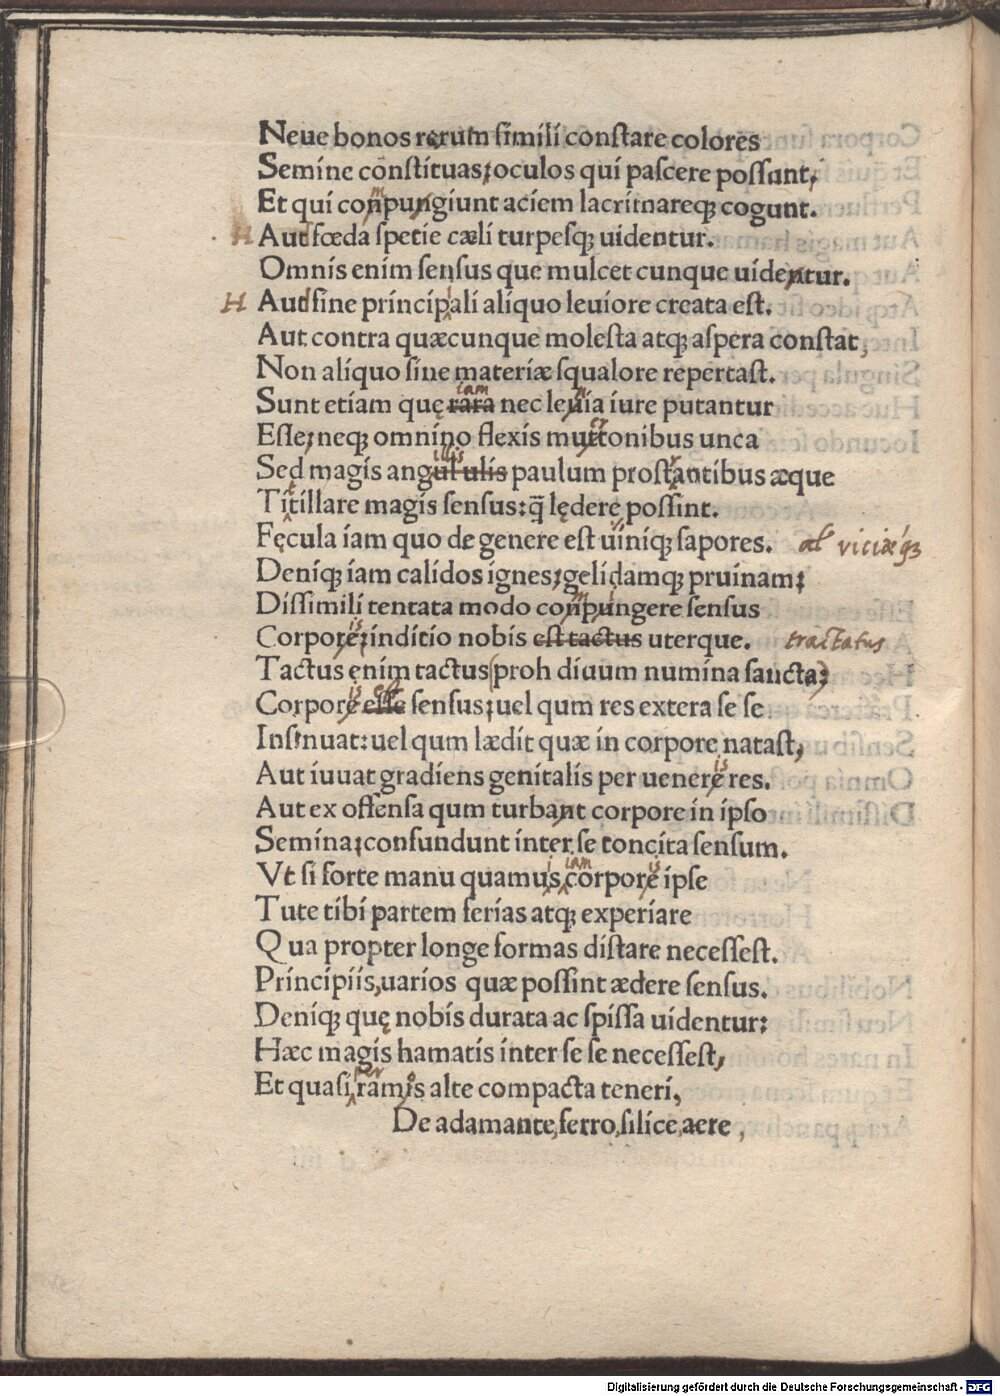 Neue bonos rerum simili constare colores
Semine constituas; oculos qui pascere possunt,
Et qui conpungiunt aciem lacrimareqꝫ cogunt.
H Aut fœda spetie cæli turpesqꝫ uidentur.
Omnis enim sensus que mulcet cunque uidentur.
H Aud sine principali aliquo leuiore creata est.
Aut contra quæcunque molesta atqꝫ aspera constat,
Non aliquo sine materiæ squalore repertast.
iam
Sunt etiam quę rara nec leuia iure putantur
Esse; neqꝫ omnino flexis muttonibus unca
illis
Sed magis angululis paulum prostantibus æque
Titillare magis sensus: q̄ lędere possint.
Fęcula iam quo de genere est uiniqꝫ sapores. al' viciæqꝫ
Deniqꝫ iam calidos ignes; gelidamqꝫ pruinam;
Dissimili tentata modo conpungere sensus
is
Corpore; inditio nobis est tactus uterque. tractatus
Tactus enim tactus (proh diuum numina sancta;)
is est
Corpore esse sensus; uel qum res extera se se
Insinuat: uel qum lædit quæ in corpore natast,
is
Aut iuuat gradiens genitalis per uenere res.
Aut ex offensa qum turbant corpore in ipso
Semina; confundunt inter se concita sensum.
i iam is
Vt si forte manu quamus corpore ipse
Tute tibi partem ferias atqꝫ experiare
Qua propter longe formas distare necessest.
Principiis, uarios quæ possint ædere sensus.
Deniqꝫ quę nobis durata ac spissa uidentur:
Hæc magis hamatis inter se se necessest,
per o
Et quasi ramis alte compacta teneri,
De adamante, ferro, silice, aere,
Digitalisierung gefördert durch die Deutsche Forschungsgemeinschaft - DFG